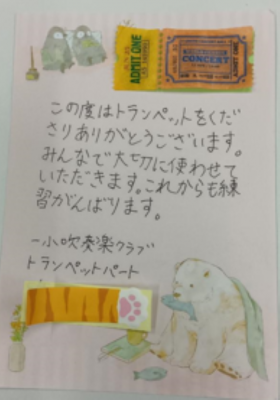 ADMIT ONE
CONCERT
ADMIT ONE
この度はトランペットをくだ
さりありがとうございます。
みんなで大切に使わせて
いただきます。これからも練
習がんばります。
一小吹奏楽クラブ
トランペットパート